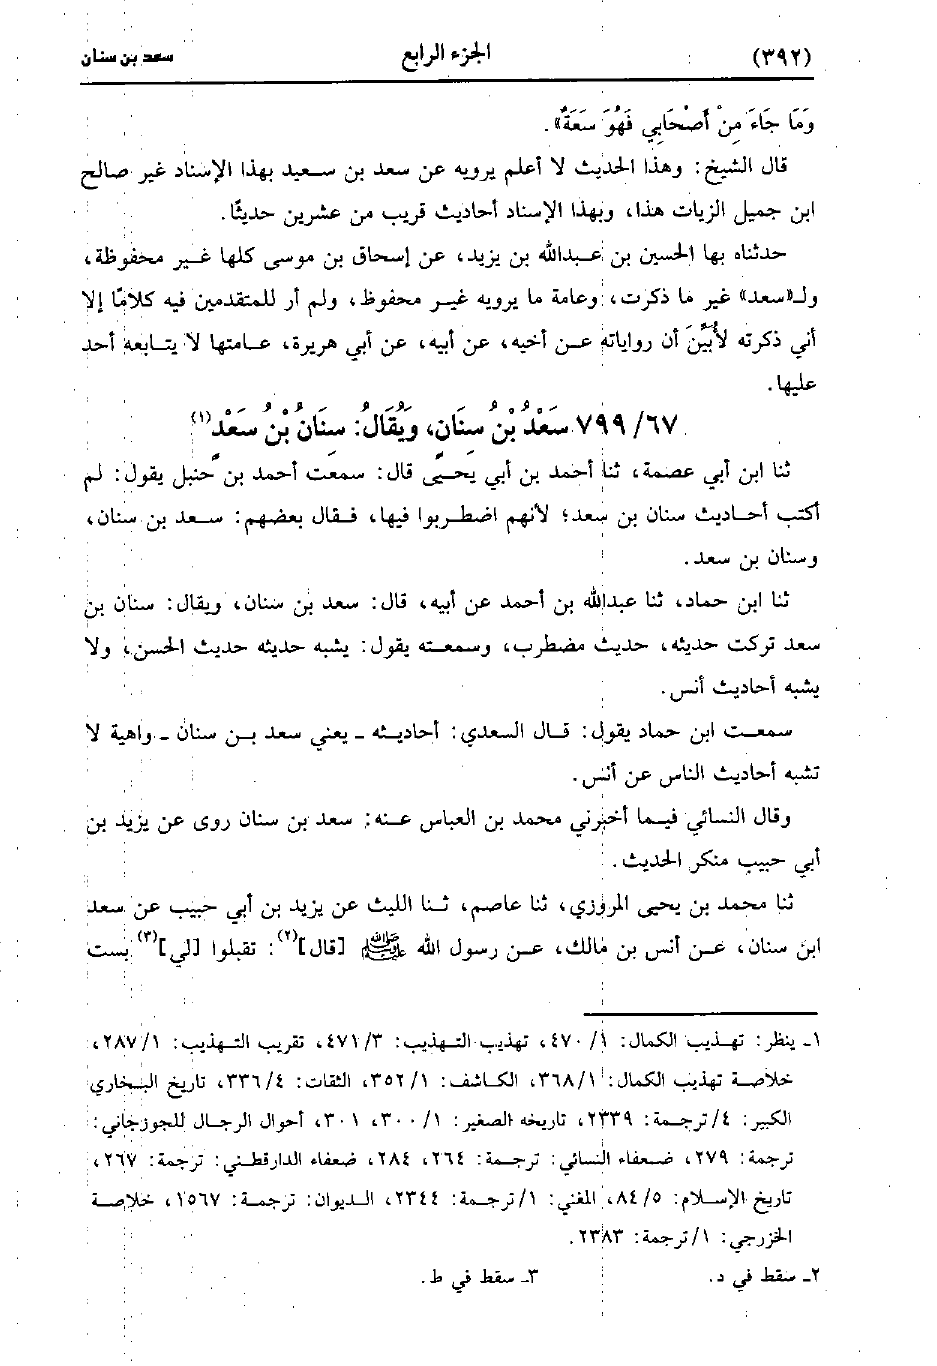 (٣٩٢) الجزء الرابع سعد بن سنان
وَمَا جَاءَ مِنْ أَصْحَابِي فَهُوَ سَعَةٌ».
قال الشيخ: وهذا الحديث لا أعلم يرويه عن سعد بن سعيد بهذا الإسناد غير صالح
ابن جميل الزيات هذا، وبهذا الإسناد أحاديث قريب من عشرين حديثًا.
حدثناه بها الحسين بن عبدالله بن يزيد، عن إسحاق بن موسى كلها غير محفوظة،
ولـ«سعد» غير ما ذكرت، وعامة ما يرويه غير محفوظ، ولم أر للمتقدمين فيه كلامًا إلا
أني ذكرته لأُبَيِّنَ أن رواياته عن أخيه، عن أبيه، عن أبي هريرة، عامتها لا يتابعه أحد
عليها.
٦٧/ ٧٩٩ سَعْدُ بْنُ سِنَانٍ، وَيُقَالُ: سِنَانُ بْنُ سَعْدٍ(١)
ثنا ابن أبي عصمة، ثنا أحمد بن أبي يحيى قال: سمعت أحمد بن حنبل يقول: لم
أكتب أحاديث سنان بن سعد؛ لأنهم اضطربوا فيها، فقال بعضهم: سعد بن سنان،
وسنان بن سعد.
ثنا ابن حماد، ثنا عبدالله بن أحمد عن أبيه، قال: سعد بن سنان، ويقال: سنان بن
سعد تركت حديثه، حديث مضطرب، وسمعته يقول: يشبه حديثه حديث الحسن، ولا
يشبه أحاديث أنس.
سمعت ابن حماد يقول: قال السعدي: أحاديثه ـ يعني سعد بن سنان ـ واهية لا
تشبه أحاديث الناس عن أنس.
وقال النسائي فيما أخبرني محمد بن العباس عنه: سعد بن سنان روى عن يزيد بن
أبي حبيب منكر الحديث.
ثنا محمد بن يحيى المروزي، ثنا عاصم، ثنا الليث عن يزيد بن أبي حبيب عن سعد
ابن سنان، عن أنس بن مالك، عن رسول الله ﷺ [قال](٢): تقبلوا [لي](٣) بست
١ـ ينظر: تهذيب الكمال: ١/ ٤٧٠، تهذيب التهذيب: ٣/ ٤٧١، تقريب التهذيب: ١/ ٢٨٧،
خلاصة تهذيب الكمال: ١/ ٣٦٨، الكاشف: ١/ ٣٥٢، الثقات: ٤/ ٣٣٦، تاريخ البخاري
الكبير: ٤/ ترجمة: ٢٣٣٩، تاريخه الصغير: ١/ ٣٠٠، ٣٠١، أحوال الرجال للجوزجاني:
ترجمة: ٢٧٩، ضعفاء النسائي: ترجمة: ٢٦٤، ٢٨٤، ضعفاء الدارقطني: ترجمة: ٢٦٧،
تاريخ الإسلام: ٥/ ٨٤، المغني: ١/ ترجمة: ٢٣٤٤، الديوان: ترجمة: ١٥٦٧، خلاصة
الخزرجي: ١/ ترجمة: ٢٣٨٣.
٢ـ سقط في د. ٣ـ سقط في ط.